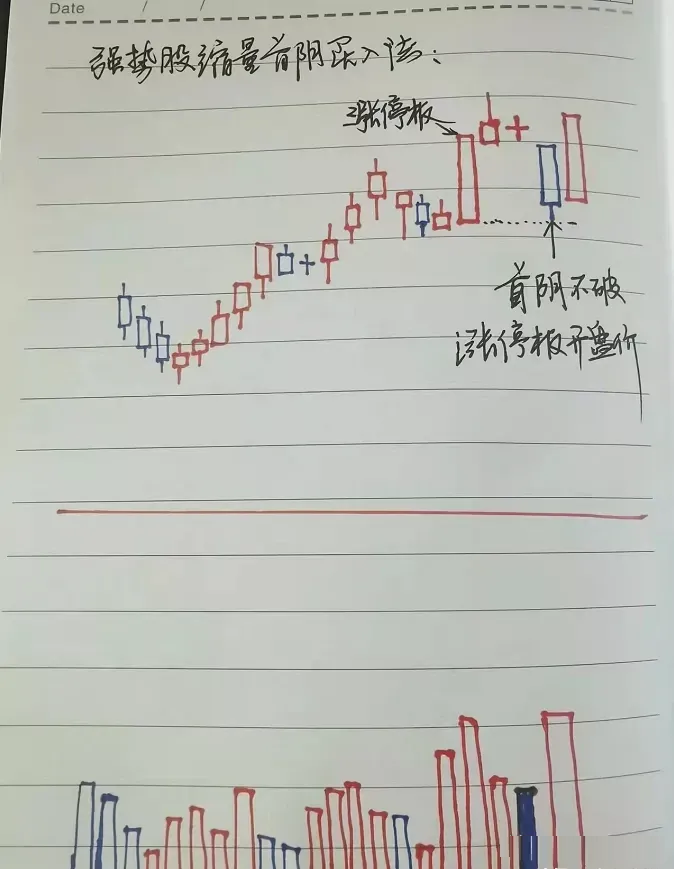 Date / /
强势股缩量首阴买入法:
涨停板
首阴不破
涨停板开盘价